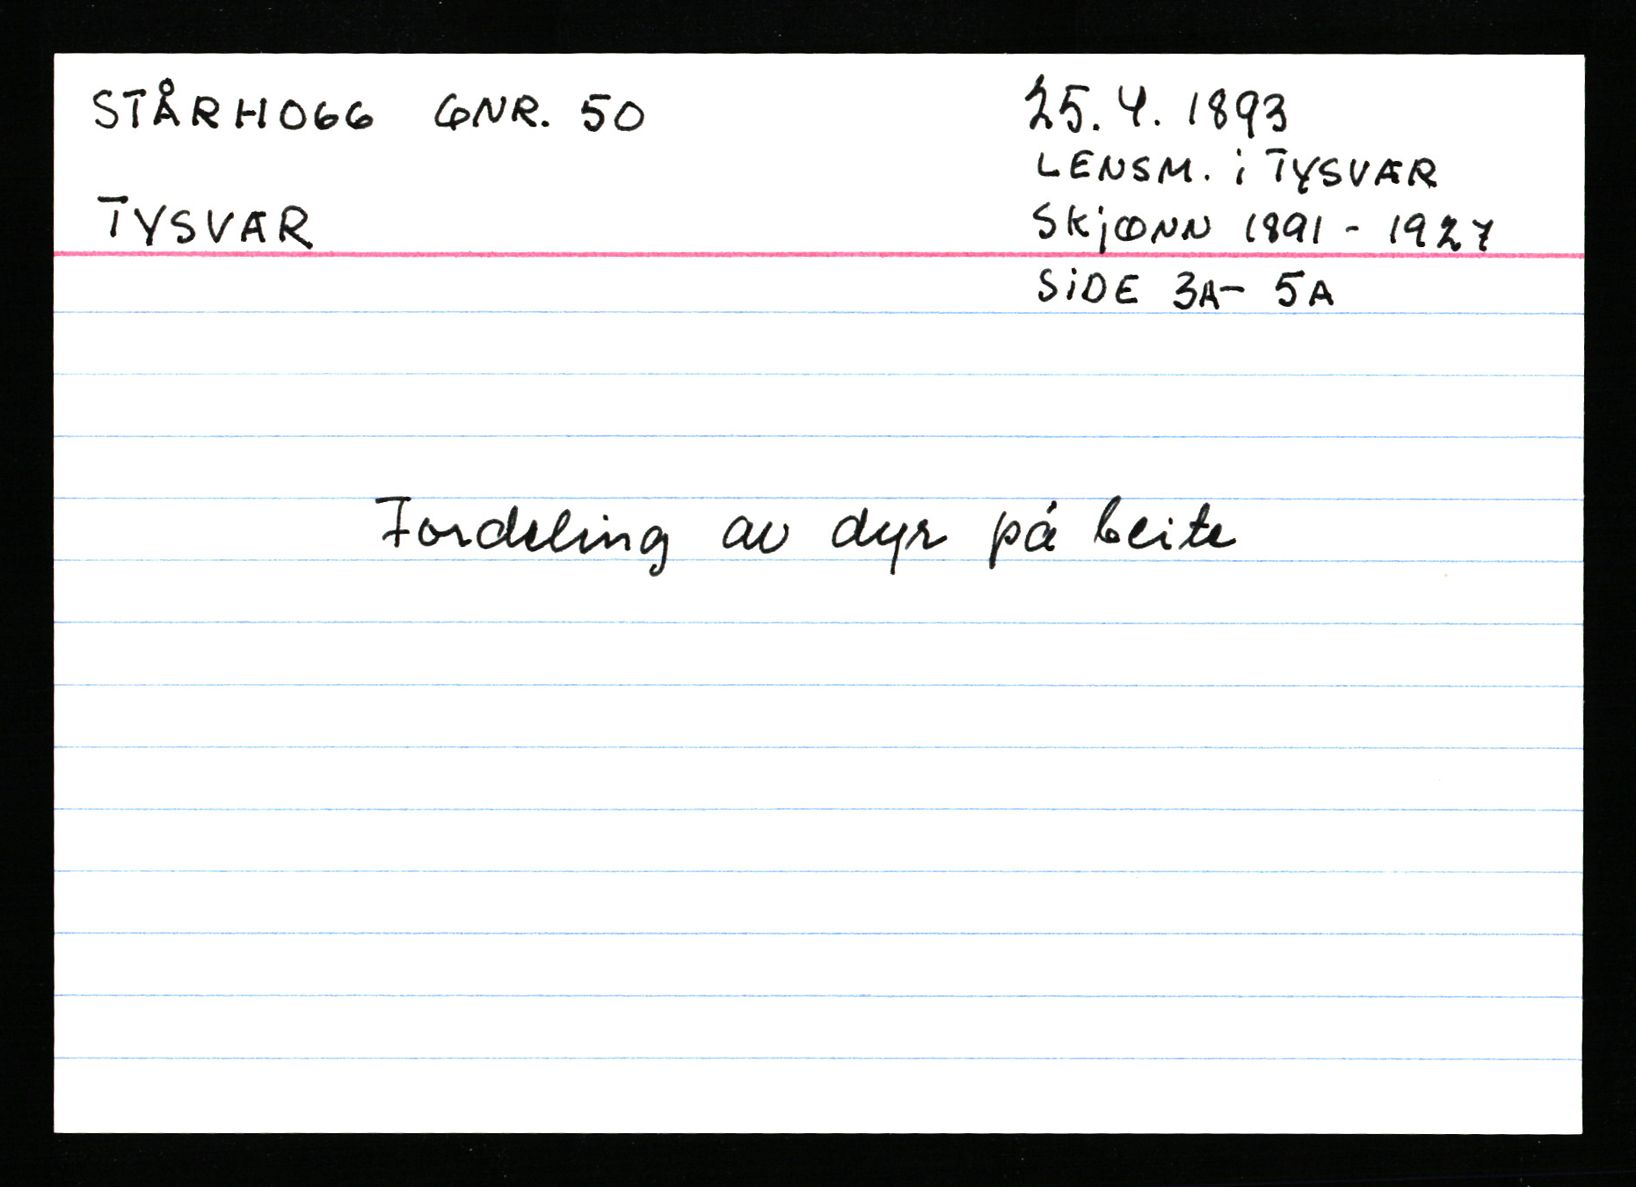 STÅRHOGG GNR. 50
TYSVÆR
25.4.1893
LENSM. i TYSVÆR
SKJØNN 1891 - 1927
SIDE 3A - 5A
Fordeling av dyr på beite